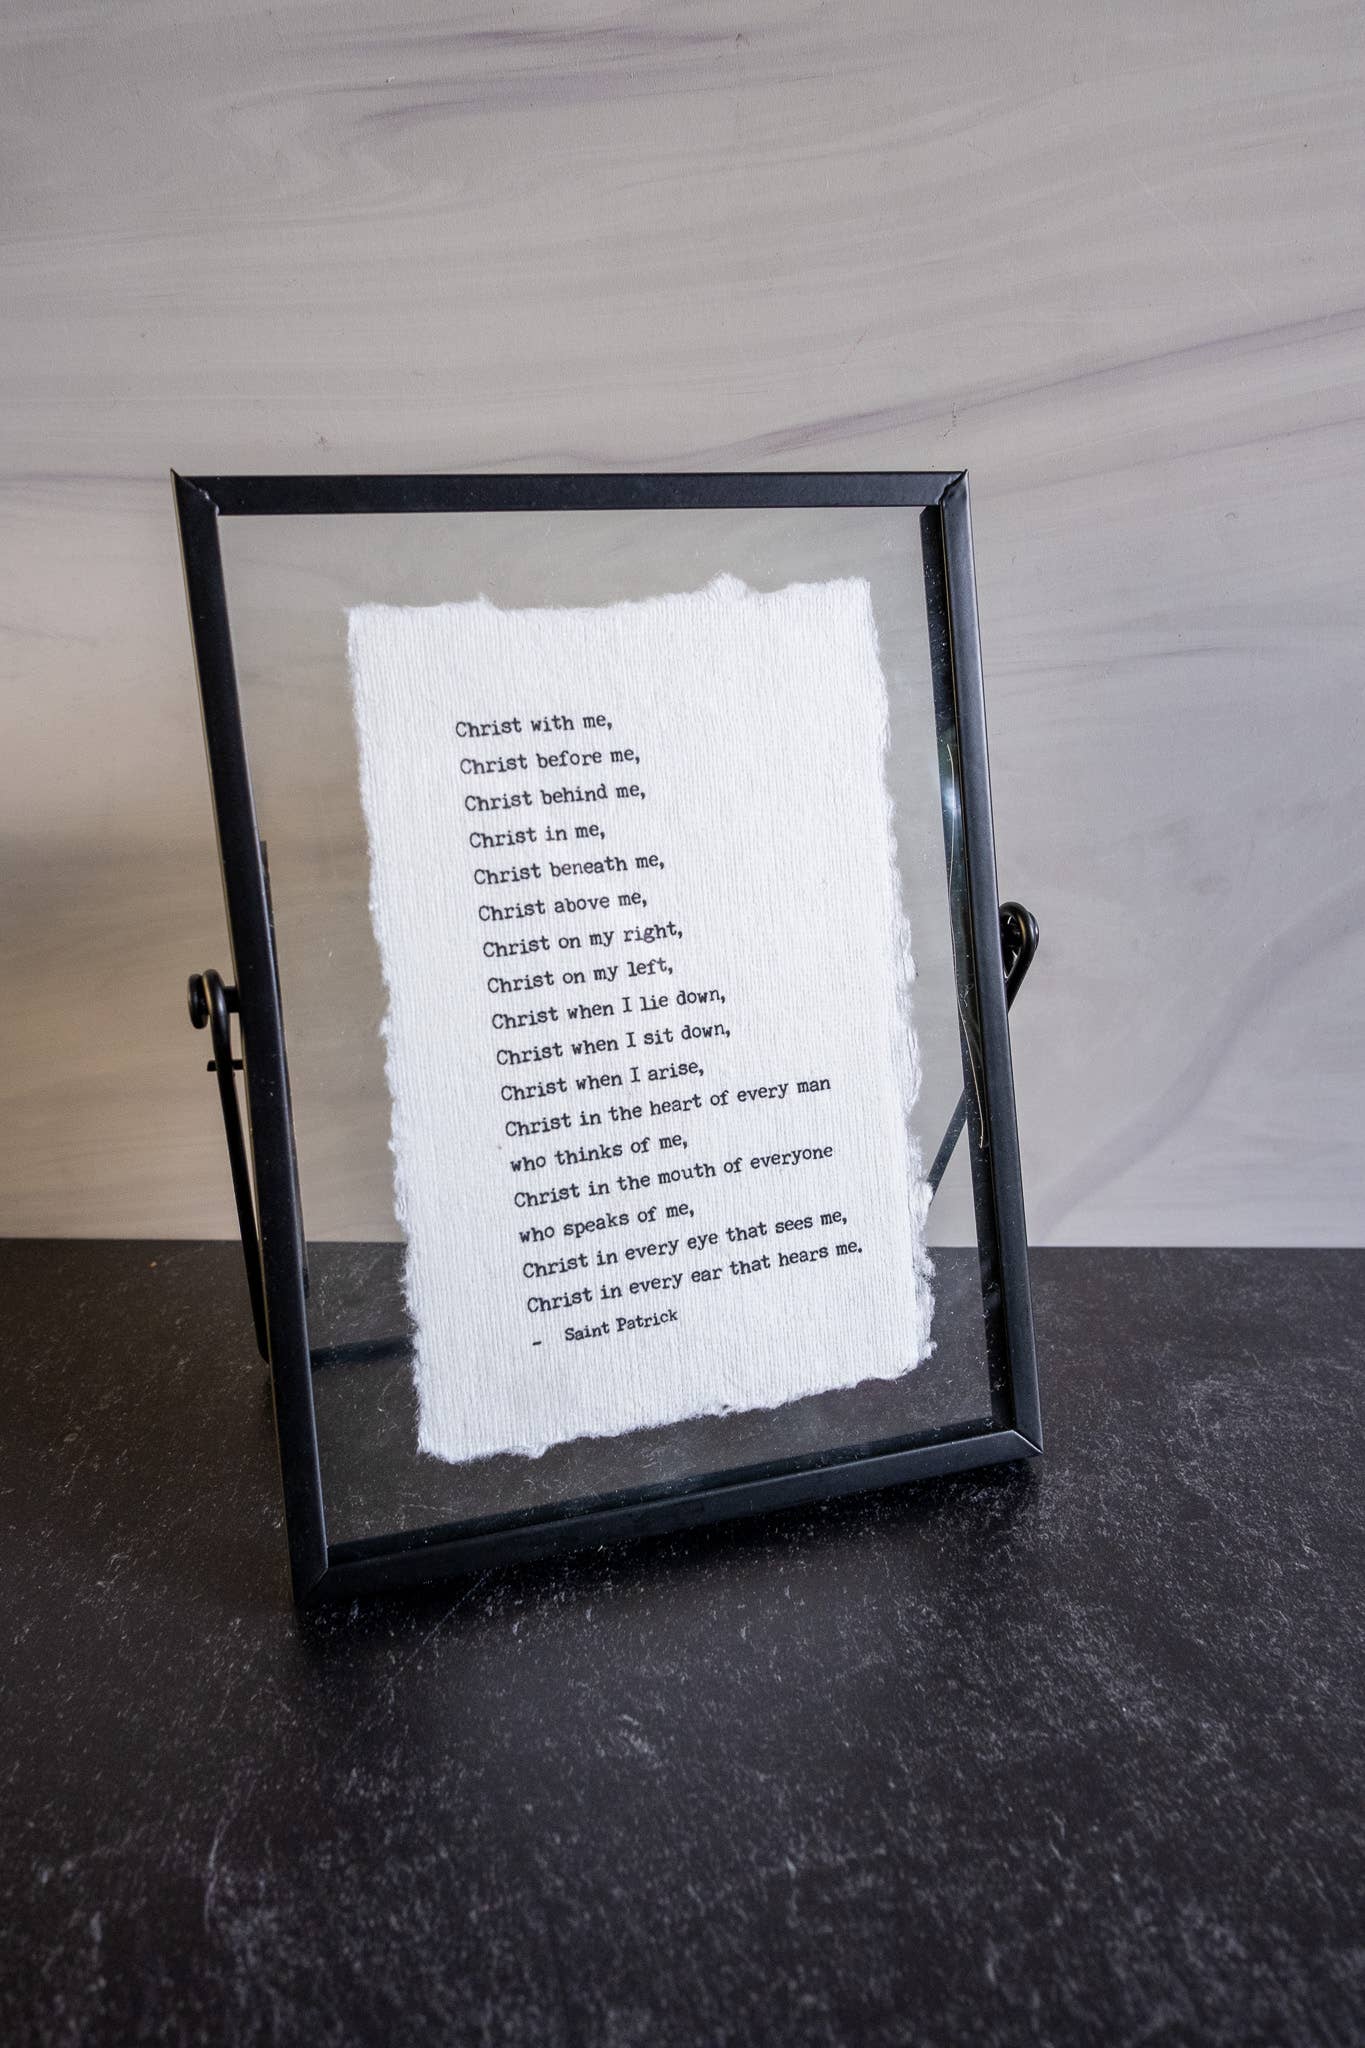 Christ with me,
Christ before me,
Christ behind me,
Christ in me,
Christ beneath me,
Christ above me,
Christ on my right,
Christ on my left,
Christ when I lie down,
Christ when I sit down,
Christ when I arise,
Christ in the heart of every man
who thinks of me,
Christ in the mouth of everyone
who speaks of me,
Christ in every eye that sees me,
Christ in every ear that hears me.
- Saint Patrick